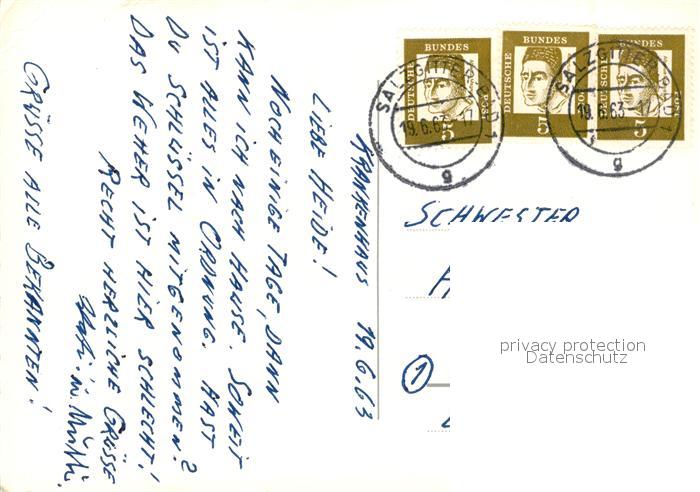 KRANKENHAUS 19.6.63
LIEBE HEIDE!
NOCH EINIGE TAGE, DANN
KANN ICH NACH HAUSE. SOWEIT
IST ALLES IN ORDNUNG. HAST
DU SCHLÜSSEL MITGENOMMEN?
DAS WETTER IST HIER SCHLECHT!
RECHT HERZLICHE GRÜSSE
GRÜSSE ALLE BEKANNTEN!
SCHWESTER
1
DEUTSCHE BUNDESPOST 5
DEUTSCHE BUNDESPOST 5
DEUTSCHE BUNDESPOST 5
SALZGITTER-BAD 1
19.6.63-17
g
SALZGITTER-BAD 1
19.6.63-17
g
privacy protection
Datenschutz